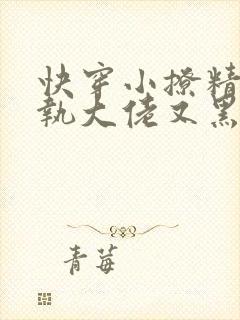 快穿小撩精
执大佬又黑
青莓